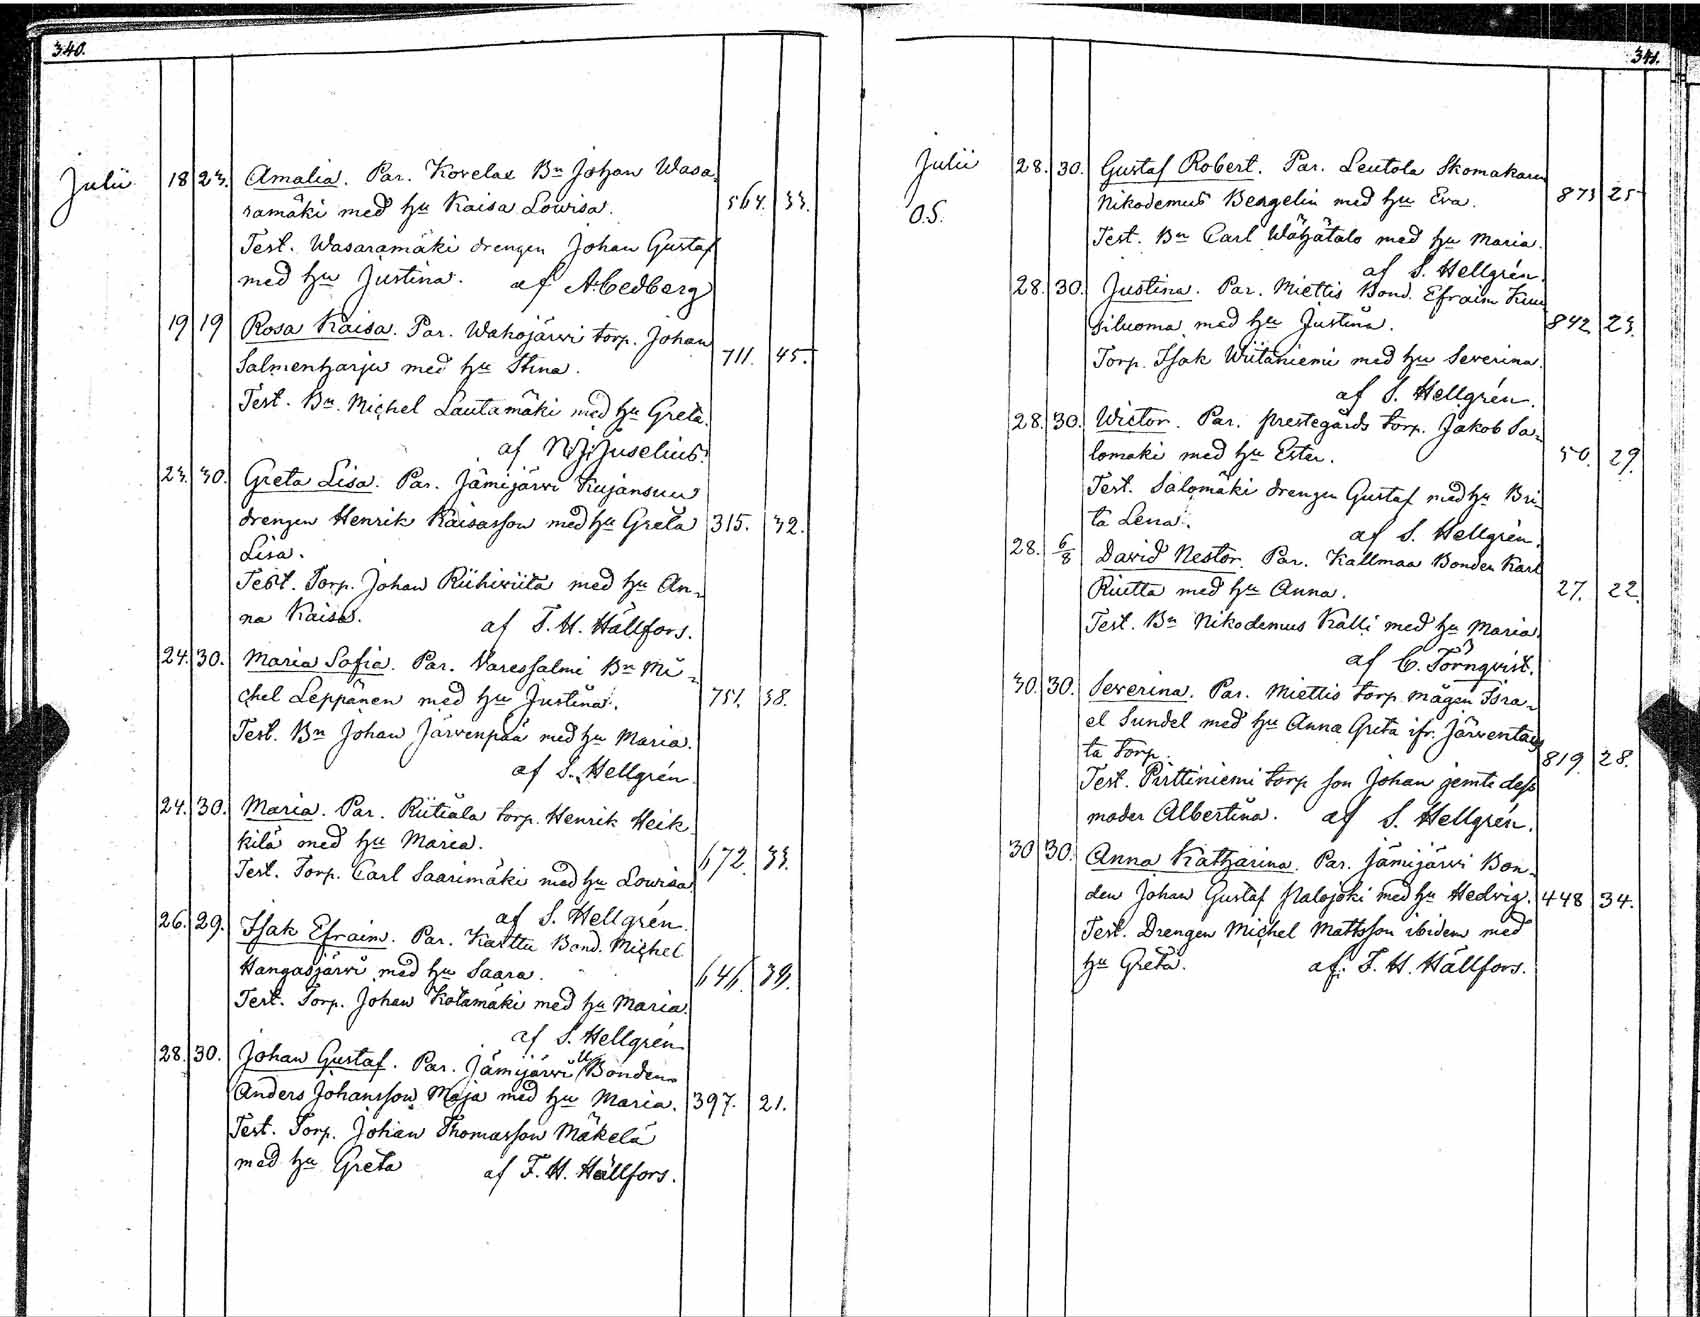 340.
Julii 18 23. Amalia. Par. Kovelax Bn Johan Wasa-
ramäki med hu Kaisa Lowisa. 564. 33.
Test. Wasaramäki drengen Johan Gustaf
med hu Justina. af A. Cedberg
19 19 Rosa Kaisa. Par. Wahojärvi torp. Johan
Salmenharju med hu Stina. 711. 45.
Test. Bn Michel Lautamäki med hu Greta.
af N. J. Juselius.
23. 30. Greta Lisa. Par. Jämijärvi Kujansuu
drengen Henrik Kaisasson med hu Greta 315. 32.
Lisa.
Test. Torp. Johan Riihiviita med hu An-
na Kaisa. af F. H. Hällfors.
24. 30. Maria Sofia. Par. Vares salmi Bn Mi-
chel Leppänen med hu Justina. 751. 38.
Test. Bn Johan Järvenpää med hu Maria.
af S. Hellgrén.
24. 30. Maria. Par. Riitiala torp. Henrik Heik
kilä med hu Maria. 672. 33.
Test. Torp. Carl Saarimäki med hu Lowisa
af S. Hellgrén.
26. 29. Isak Efraim. Par. Karttu Bond. Michel
Hangasjärvi med hu Saara. 646.
Test. Torp. Johan Kotamäki med hu Maria.
af S. Hellgrén
28. 30. Johan Gustaf. Par. Jämijärvi Bonden
Anders Johansson Maja med hu Maria. 397. 21.
Test. Torp. Johan Thomasson Mäkelä
med hu Greta af F. H. Hällfors.
341.
Julii 28. 30. Gustaf Robert. Par. Leutola Skomakaren
O.S. Nikodemus Bergelin med hu Eva. 873 25
Test. Bn Carl Wähätalo med hu Maria.
af S. Hellgrén.
28. 30. Justina. Par. Miettis Bond. Efraim Kuu
siluoma med hu Justina. 842 23.
Torp. Isak Wiitaniemi med hu Severina.
af S. Hellgrén.
28. 30. Wictor. Par. prestegårds torp. Jakob Sa-
lomaki med hu Ester. 50. 29.
Test. Salomäki drengen Gustaf med hu Bri-
ta Lena. af S. Hellgrén.
28. 6/8 David Nestor. Par. Kallmaa Bonden Karl
Ruitta med hu Anna. 27. 22.
Test. Bn Nikodemus Kalli med hu Maria.
af C. Törnqvist.
30. 30. Severina. Par. Miettis torp. mågen Isra-
el Sundel med hu Anna Greta ifr. Järventaus
ta torp. 819. 28.
Test. Pirttiniemi torp son Johan jemte dess
moder Albertina. af S. Hellgrén.
30 30. Anna Katharina. Par. Jämijärvi Bon-
den Johan Gustaf Palojoki med hu Hedvig. 448 34.
Test. Drengen Michel Mattsson ibidem med
hu Greta. af. F. H. Hällfors.